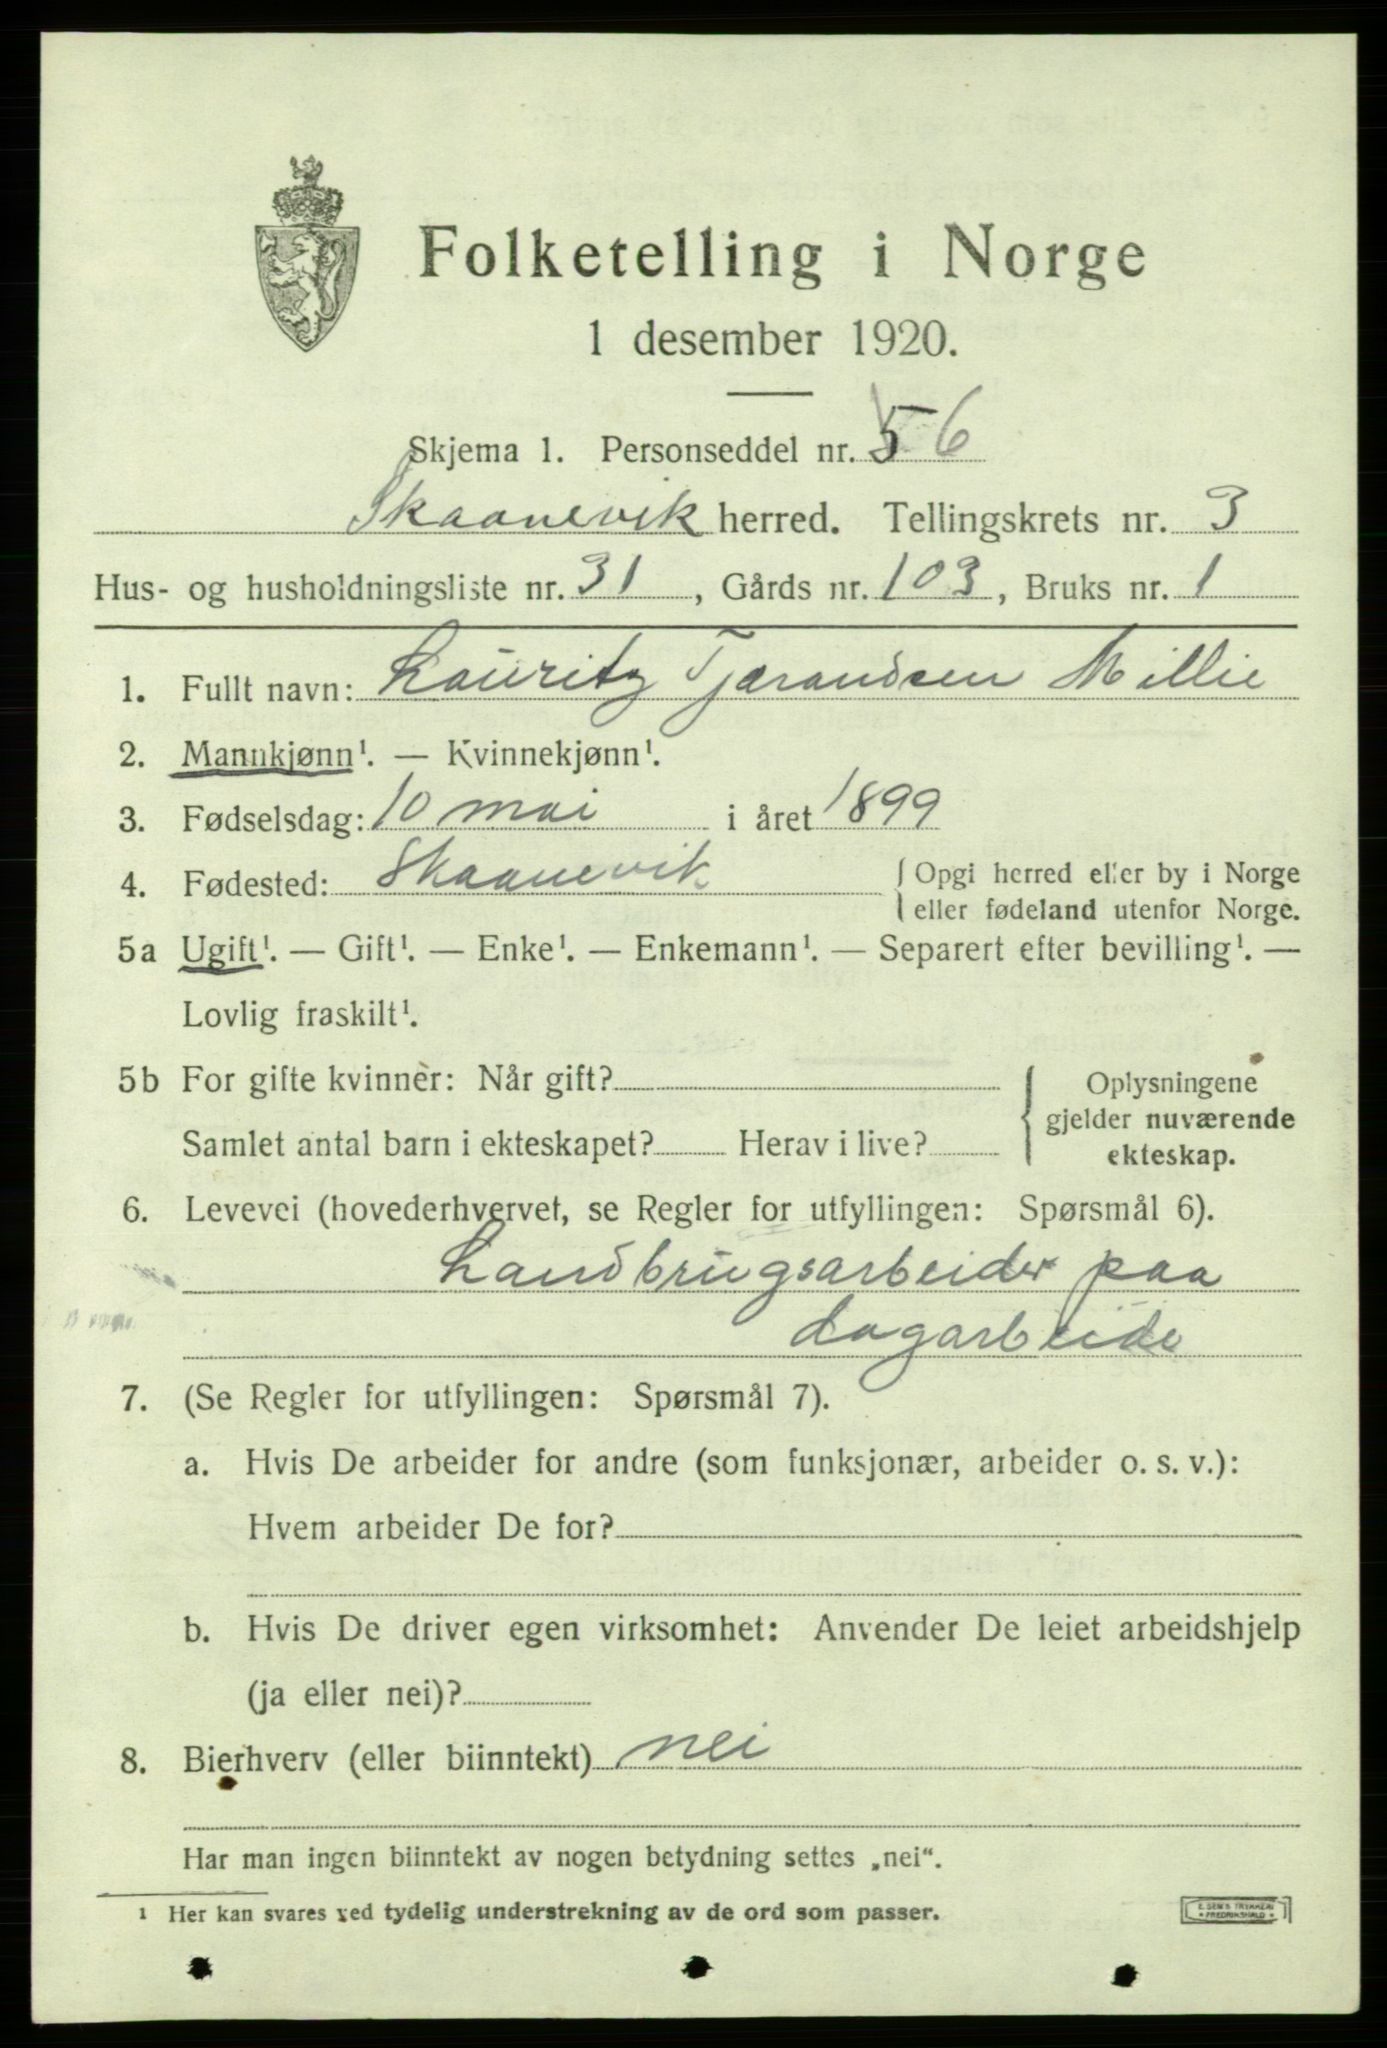 Folketelling i Norge
1 desember 1920.
Skjema 1. Personseddel nr. 56
Skaanevik herred. Tellingskrets nr. 3
Hus- og husholdningsliste nr. 31, Gårds nr. 103, Bruks nr. 1
1. Fullt navn: Lauritz Tjerandsen Millie
2. Mannkjønn¹. — Kvinnekjønn¹.
3. Fødselsdag: 10 mai i året 1899
4. Fødested: Skaanevik { Opgi herred eller by i Norge
eller fødeland utenfor Norge.
5a Ugift¹. — Gift¹. — Enke¹. — Enkemann¹. — Separert efter bevilling¹. —
Lovlig fraskilt¹.
5b For gifte kvinner: Når gift? { Oplysningene
gjelder nuværende
Samlet antal barn i ekteskapet? Herav i live?
ekteskap.
6. Levevei (hovederhvervet, se Regler for utfyllingen: Spørsmål 6).
Landbrugsarbeider paa
dagarbeide
7. (Se Regler for utfyllingen: Spørsmål 7).
a. Hvis De arbeider for andre (som funksjonær, arbeider o. s. v.):
Hvem arbeider De for?
b. Hvis De driver egen virksomhet: Anvender De leiet arbeidshjelp
(ja eller nei)?
8. Bierhverv (eller biinntekt) nei
Har man ingen biinntekt av nogen betydning settes „nei“.
¹ Her kan svares ved tydelig understrekning av de ord som passer.
E. SEM'S TRYKKERI
FREDRIKSHALD